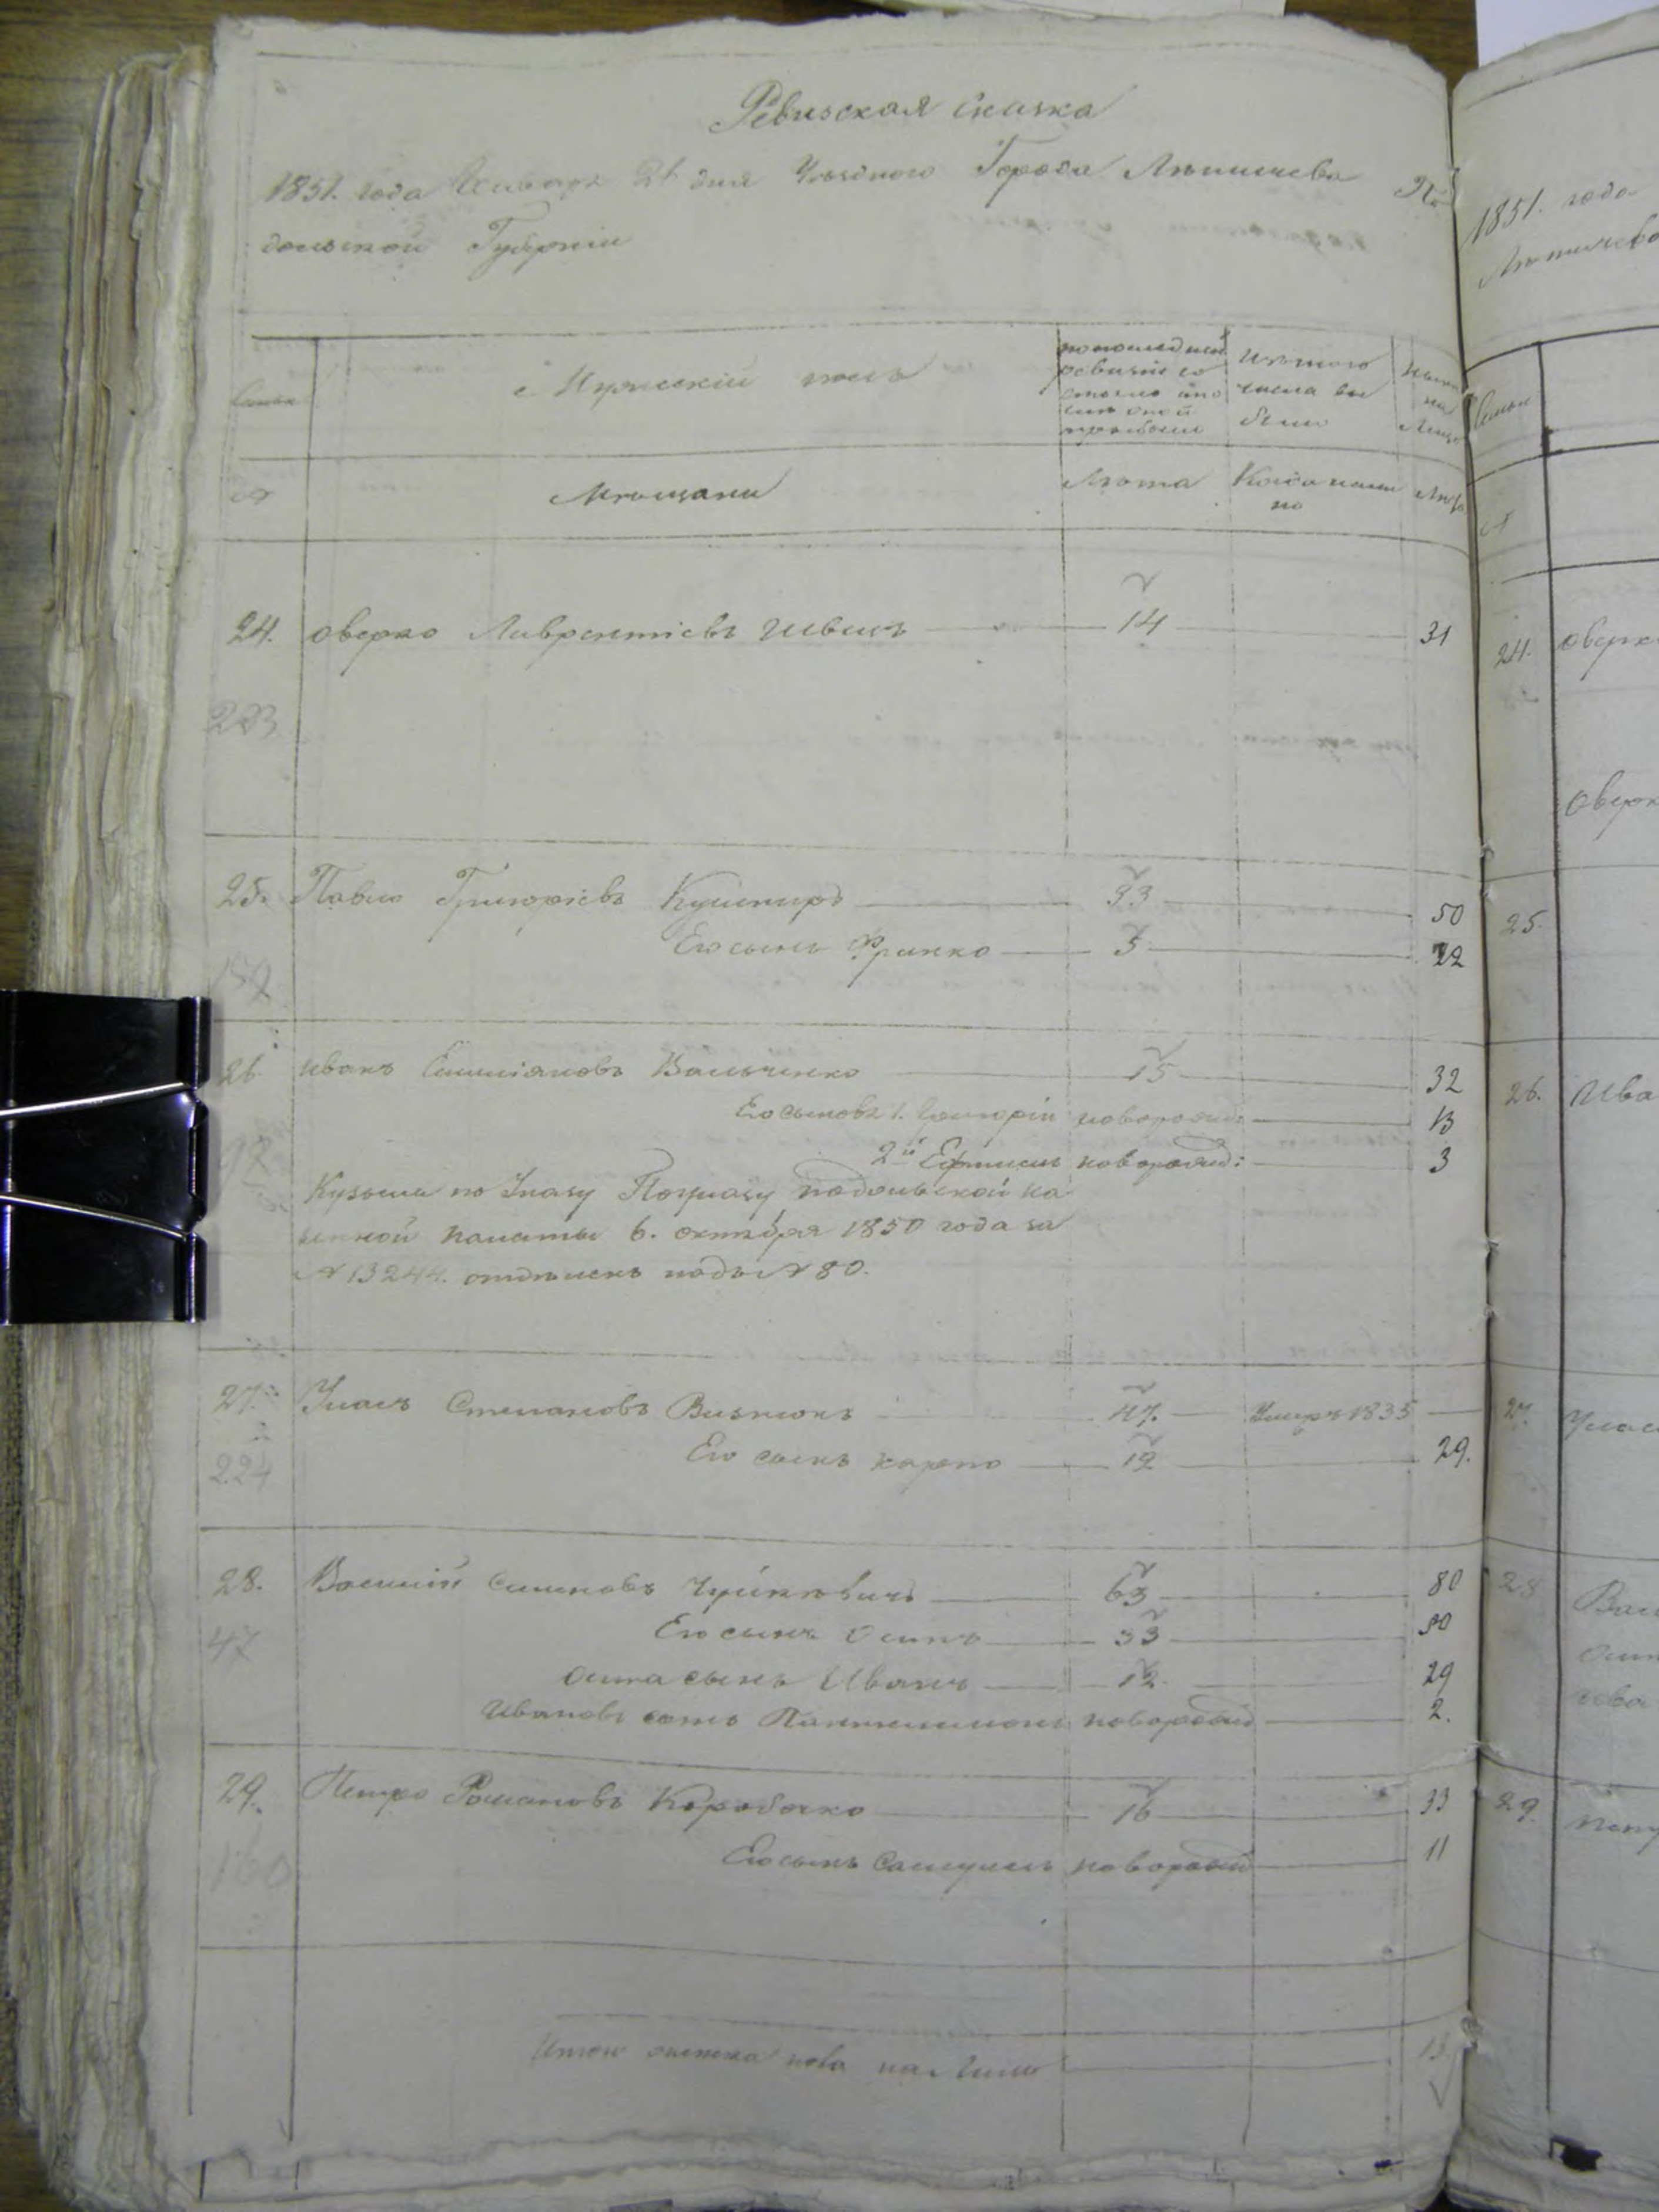 Ревизская Сказка
1851. года Января 26 дня Уѣзднаго Города Лѣтичева По
дольской Губерніи
Семьи
Мужескій полъ
по последней
ревизіи со
стояло или
послѣ оной
прибыло
Изъ того
числа вы
было
Нынѣ
на
лицо
№
Мѣщани
Лѣта
Когда имен
но
Лѣта
24. Оверко Лаврентіевъ Швецъ 14 31
223
25. Павло Григоріевъ Кушниръ 33 50
Его сынъ Франко 5 22
159
26. Иванъ Емиліяновъ Вальченко 15 32
Его сыновья 1. Григорій новорожд: 13
2й Ефтихи новорожд: 3
92
Кузьма по Указу Подольской ка
зенной палаты 6. октября 1850 года за
№ 13244. отдѣленъ подъ № 80.
27. Уласъ Степановъ Визнюкъ 47. Умеръ 1835
Его сынъ Карпо 12 29.
224
28. Василій Симоновъ 63 80
Его сынъ Осипъ 33 50
47
Осипа сынъ Иванъ 12 29
Ивановъ сынъ Пантелимонъ новорожд 2.
29. Петро Романовъ Коробочко 16 33
Его сынъ Самуилъ новорожд 11
160
Итого мужеска пола на лицо 13
1851. года
Лѣтичева
Семьи
№
24. Оверк
Оверк
25.
26. Ива
27. Улас
28 Вас
Осип
Ива
29. Пет